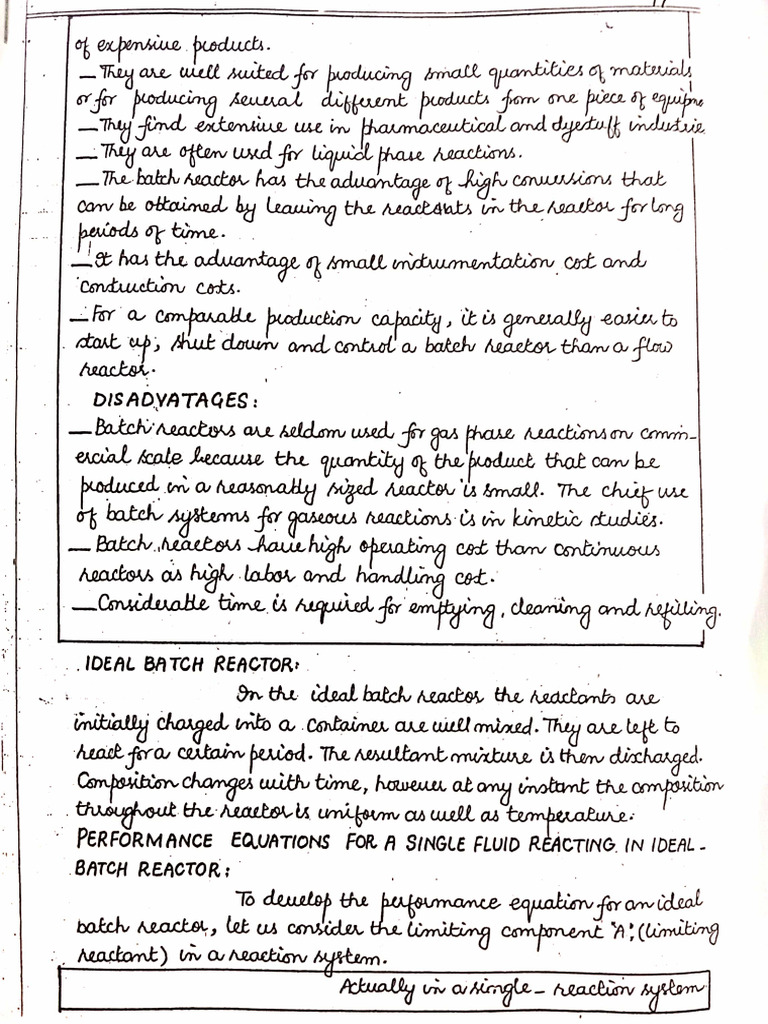 of expensive products.
— They are well suited for producing small quantities of materials
or for producing several different products from one piece of equipme
— They find extensive use in pharmaceutical and dyestuff industrie
— They are often used for liquid phase reactions.
— The batch reactor has the advantage of high conversions that
can be obtained by leaving the reactants in the reactor for long
periods of time.
— It has the advantage of small instrumentation cost and
contruction costs.
— For a comparable production capacity, it is generally easier to
start up, shut down and control a batch reactor than a flow
reactor.
DISADVATAGES:
— Batch reactors are seldom used for gas phase reactions on comm-
ercial scale because the quantity of the product that can be
produced in a reasonably sized reactor is small. The chief use
of batch systems for gaseous reactions is in kinetic studies.
— Batch reactors have high operating cost than continuous
reactors as high labor and handling cost.
— Considerable time is required for emptying, cleaning and refilling.
IDEAL BATCH REACTOR:
In the ideal batch reactor the reactants are
initially charged into a container are well mixed. They are left to
react for a certain period. The resultant mixture is then discharged.
Composition changes with time, however at any instant the composition
throughout the reactor is uniform as well as temperature.
PERFORMANCE EQUATIONS FOR A SINGLE FLUID REACTING IN IDEAL-
BATCH REACTOR:
To develop the performance equation for an ideal
batch reactor, let us consider the limiting component 'A', (limiting
reactant) in a reaction system.
Actually in a single- reaction system